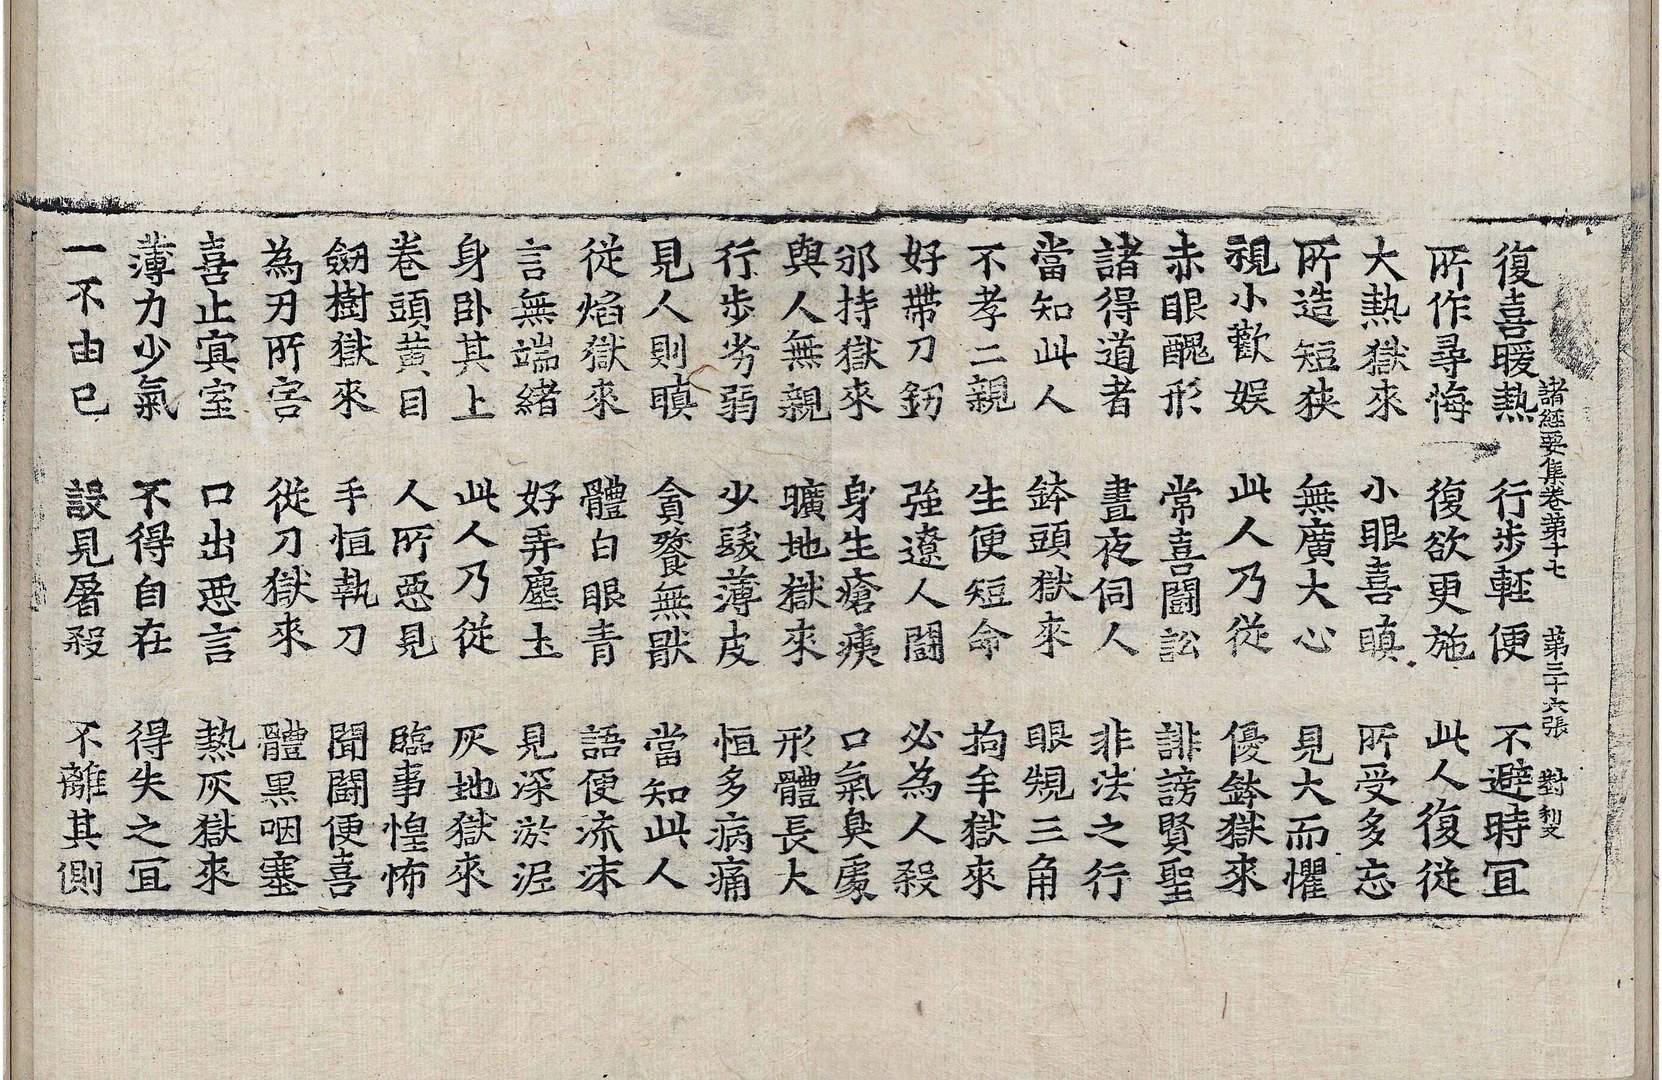 諸經要集卷第十七 第三十六張 對 利文
復喜暖熱 行步輕便 不避時冝
所作尋悔 復欲更施 此人復從
大熱獄來 小眼喜瞋 所受多忘
所造短狹 無廣大心 見大而懼
視小歡娛 此人乃從 優鉢獄來
赤眼醜形 常喜鬪訟 誹謗賢聖
諸得道者 晝夜伺人 非法之行
當知此人 鉢頭獄來 眼䂓三角
不孝二親 生便短命 拘牟獄來
好帶刀釰 強遼人鬪 必為人殺
邠持獄來 身生瘡痍 口氣臭處
與人無親 曠地獄來 形體長大
行步劣弱 少髮薄皮 恒多病痛
見人則瞋 貪餮無猒 當知此人
從焰獄來 體白眼青 語便流沫
言無端緒 好弄塵土 見深淤泥
身卧其上 此人乃從 灰地獄來
卷頭黃目 人所惡見 臨事惶怖
劒樹獄來 手恒執刀 聞鬪便喜
為刃所害 從刀獄來 體黑咽塞
喜止㝠室 口出惡言 熱灰獄來
薄力少氣 不得自在 得失之冝
一不由已 設見屠殺 不離其側